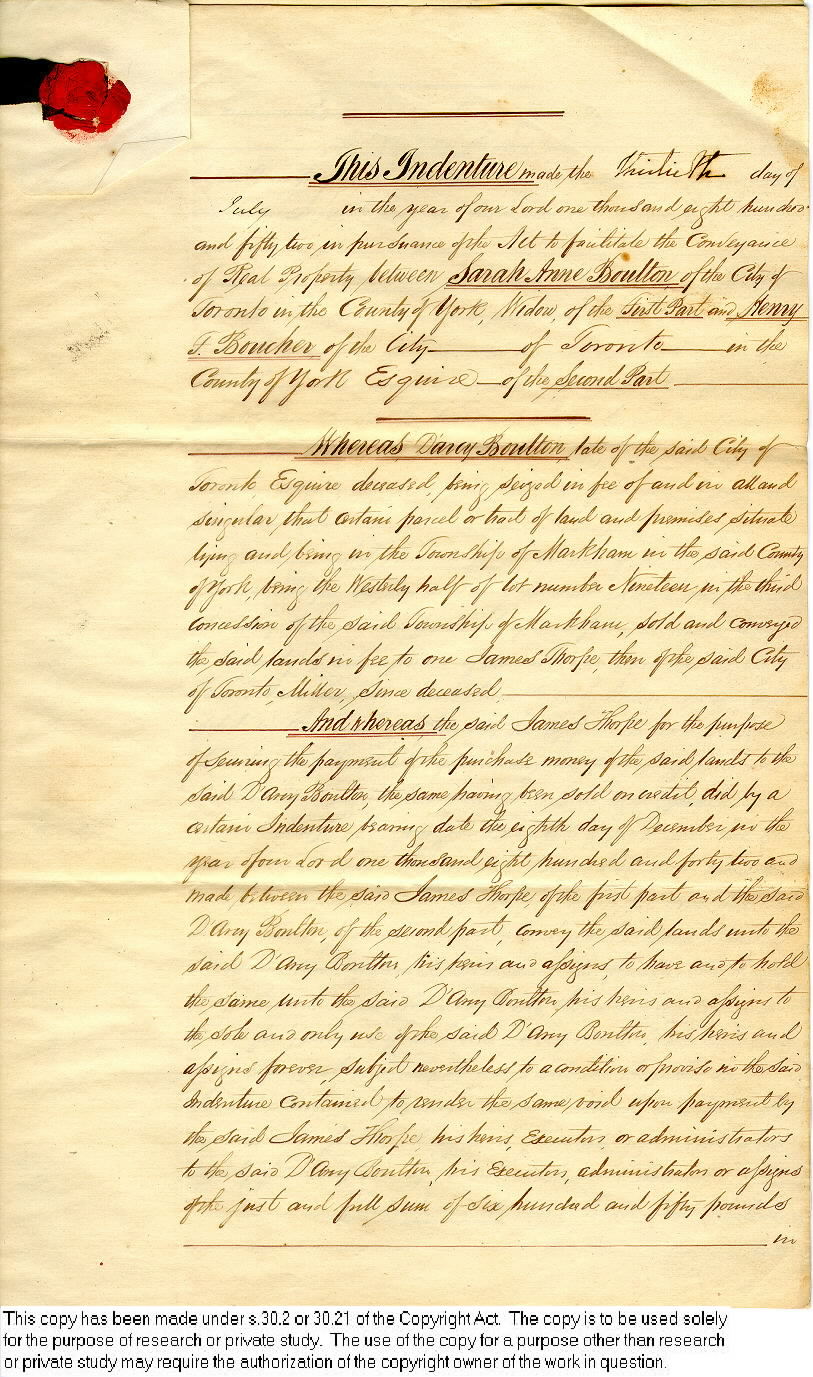 This Indenture made the Thirtieth day of
July in the year of our Lord one thousand eight hundred
and fifty two in pursuance of the Act to facilitate the Conveyance
of Real Property, between Sarah Anne Boulton of the City of
Toronto in the County of York, Widow, of the First Part and Henry
F. Boucher of the City of Toronto in the
County of York Esquire of the Second Part
Whereas, D'arcy Boulton, late of the said City of
Toronto Esquire deceased, being seized in fee of and in all and
singular, that certain parcel or tract of land and premises, situate
lying and being in the Township of Markham in the said County
of York, being the Westerly half of lot number Nineteen, in the third
concession of the said Township of Markham, sold and conveyed
the said lands in fee to one James Thorpe, then of the said City
of Toronto, Miller, since deceased
And whereas, the said James Thorpe for the purpose
of securing the payment of the purchase money of the said lands to the
said D'Arcy Boulton, the same having been sold on credit, did by a
certain Indenture bearing date the eighth day of December, in the
year of our Lord one thousand eight hundred and forty two and
made between the said James Thorpe of the first part and the said
D'Arcy Boulton, of the second part, convey the said lands unto the
said D'Arcy Boulton, his heirs and assigns, to have and to hold
the same unto the said D'Arcy Boulton, his heirs and assigns to
the sole and only use of the said D'Arcy Boulton, his heirs and
assigns forever, subject nevertheless to a condition or proviso in the said
Indenture contained to render the same void upon payment by
the said James Thorpe his heirs, Executors, or administrators
to the said D'Arcy Boulton, his Executors, administrators or assigns
of the just and full sum of six hundred and fifty pounds
in
This copy has been made under s.30.2 or 30.21 of the Copyright Act. The copy is to be used solely
for the purpose of research or private study. The use of the copy for a purpose other than research
or private study may require the authorization of the copyright owner of the work in question.